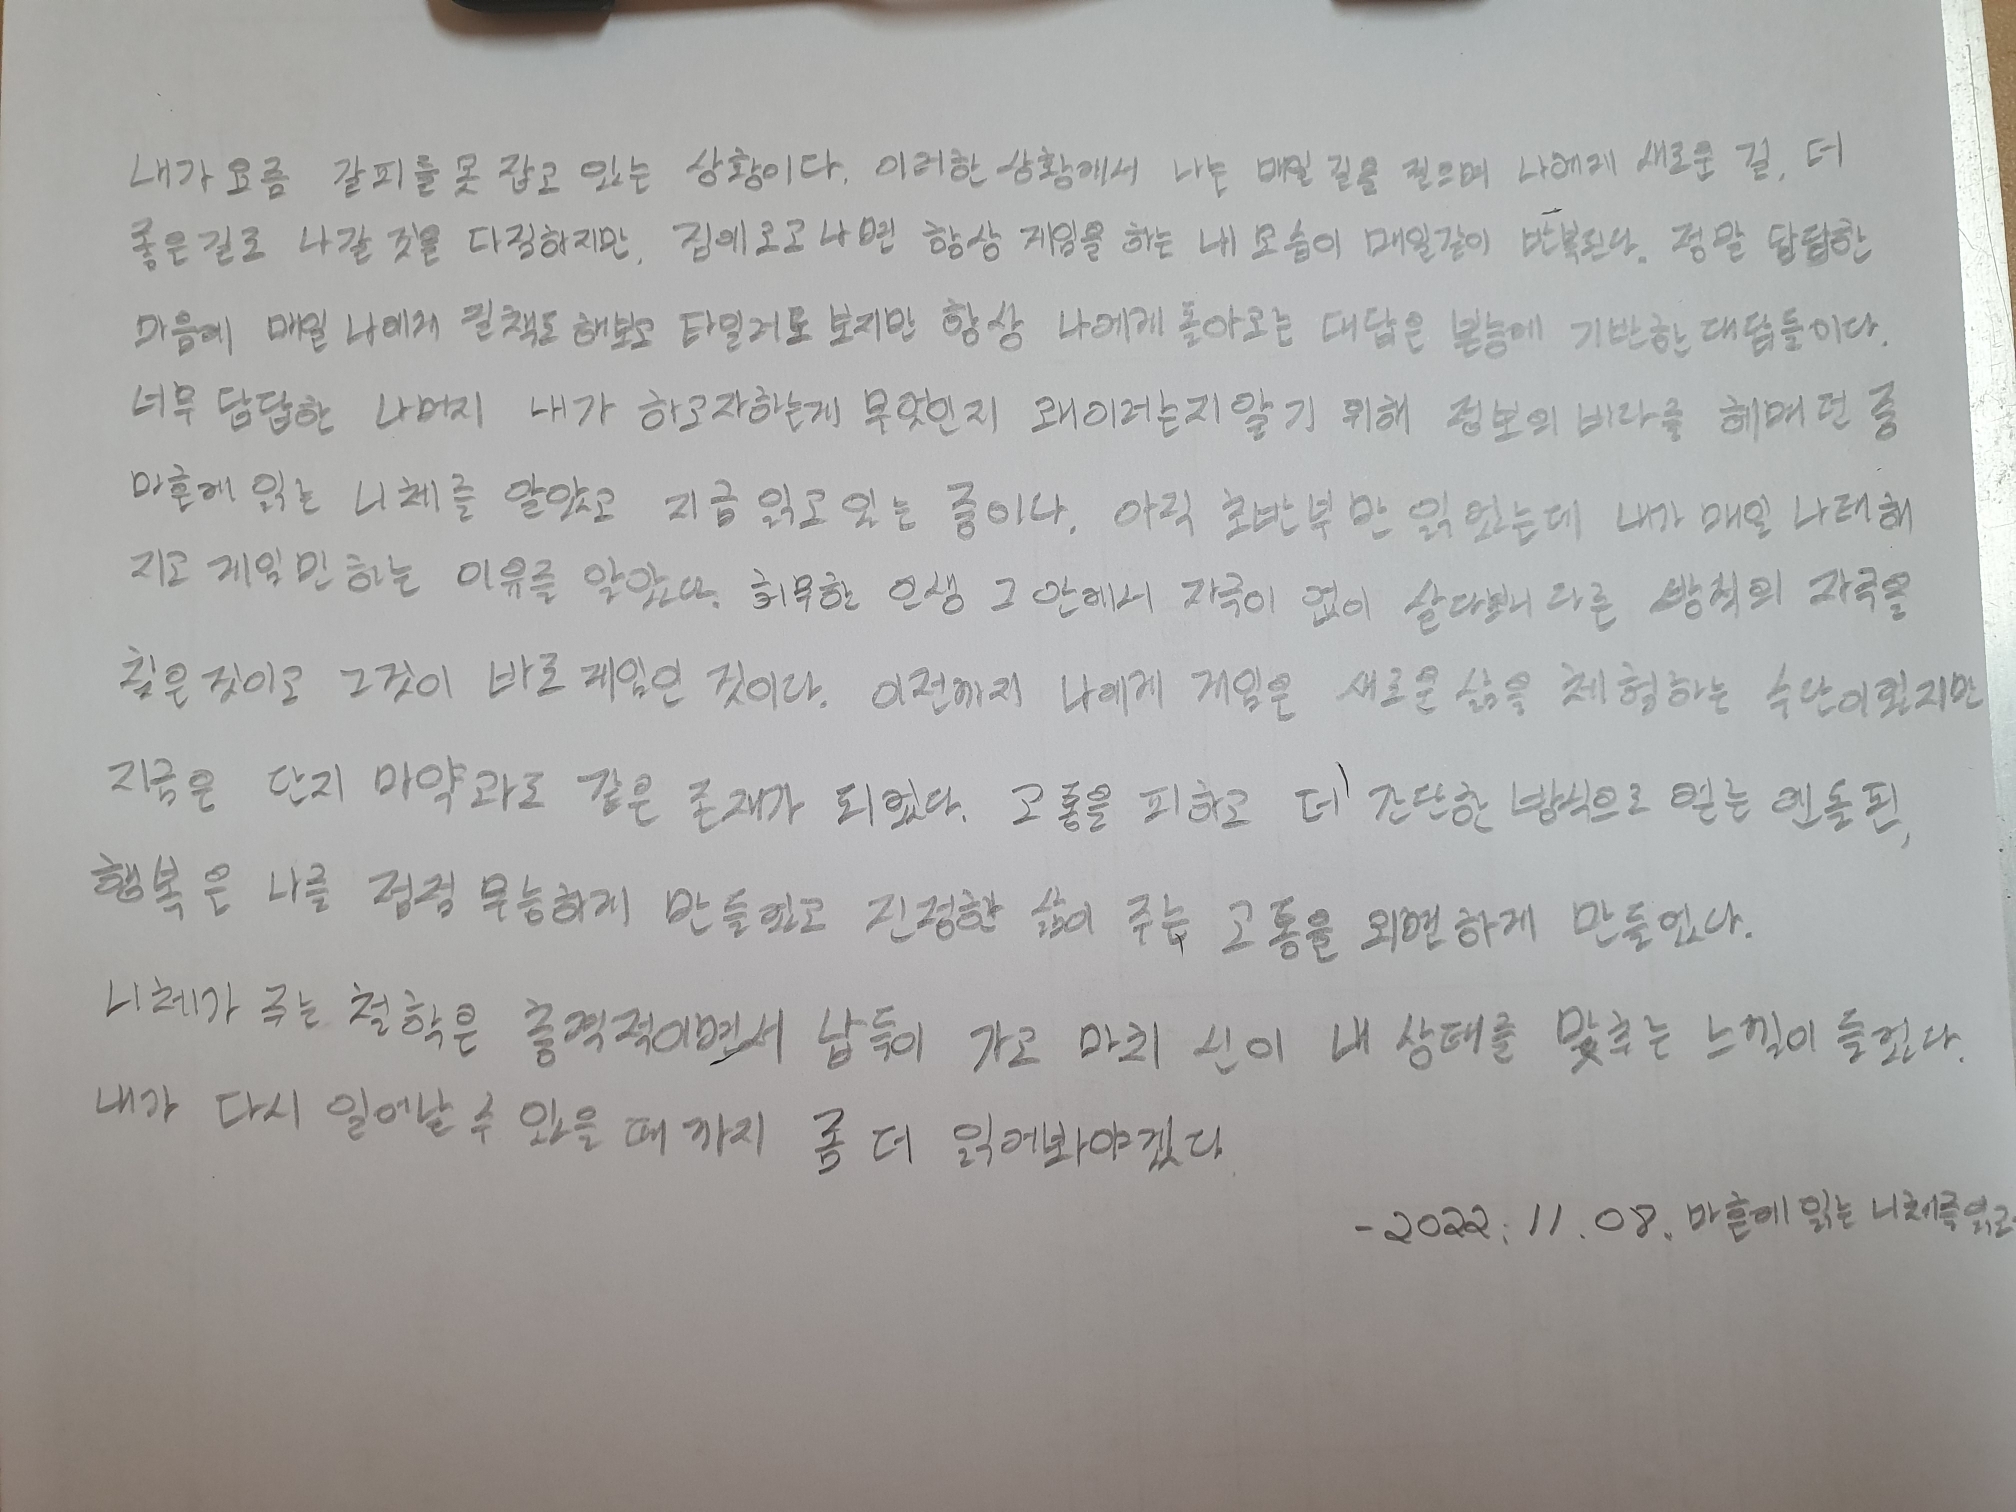 내가 요즘 갈피를 못 잡고 있는 상황이다. 이러한 상황에서 나는 매일 길을 걸으며 나에게 새로운 길, 더
좋은 길로 나갈 것을 다짐하지만, 집에 오고 나면 항상 게임을 하는 내 모습이 매일같이 반복된다. 정말 답답한
마음에 매일 나에게 질책도 해보고 타일러도 보지만 항상 나에게 돌아오는 대답은 본능에 기반한 대답들이다.
너무 답답한 나머지 내가 하고자하는게 무엇인지 왜이러는지 알기 위해 정보의 바다를 헤매던 중
마흔에 읽는 니체를 알았고 지금 읽고 있는 중이다. 아직 초반부만 읽었는데 내가 매일 나태해
지고 게임만 하는 이유를 알았다. 허무한 인생 그 안에서 자극이 없이 살다보니 다른 방식의 자극을
찾은 것이고 그것이 바로 게임인 것이다. 이전까지 나에게 게임은 새로운 삶을 체험하는 수단이였지만
지금은 단지 마약과도 같은 존재가 되었다. 고통을 피하고 더 간단한 방식으로 얻는 연돌된,
행복은 나를 점점 무능하게 만들었고 진정한 삶이 주는 고통을 외면하게 만들었다.
니체가 주는 철학은 충격적이면서 납득이 가고 마치 신이 내 상태를 맞추는 느낌이 들었다.
내가 다시 일어날 수 있을 때까지 좀 더 읽어봐야겠다
-2022. 11. 08. 마흔에 읽는 니체를 읽고